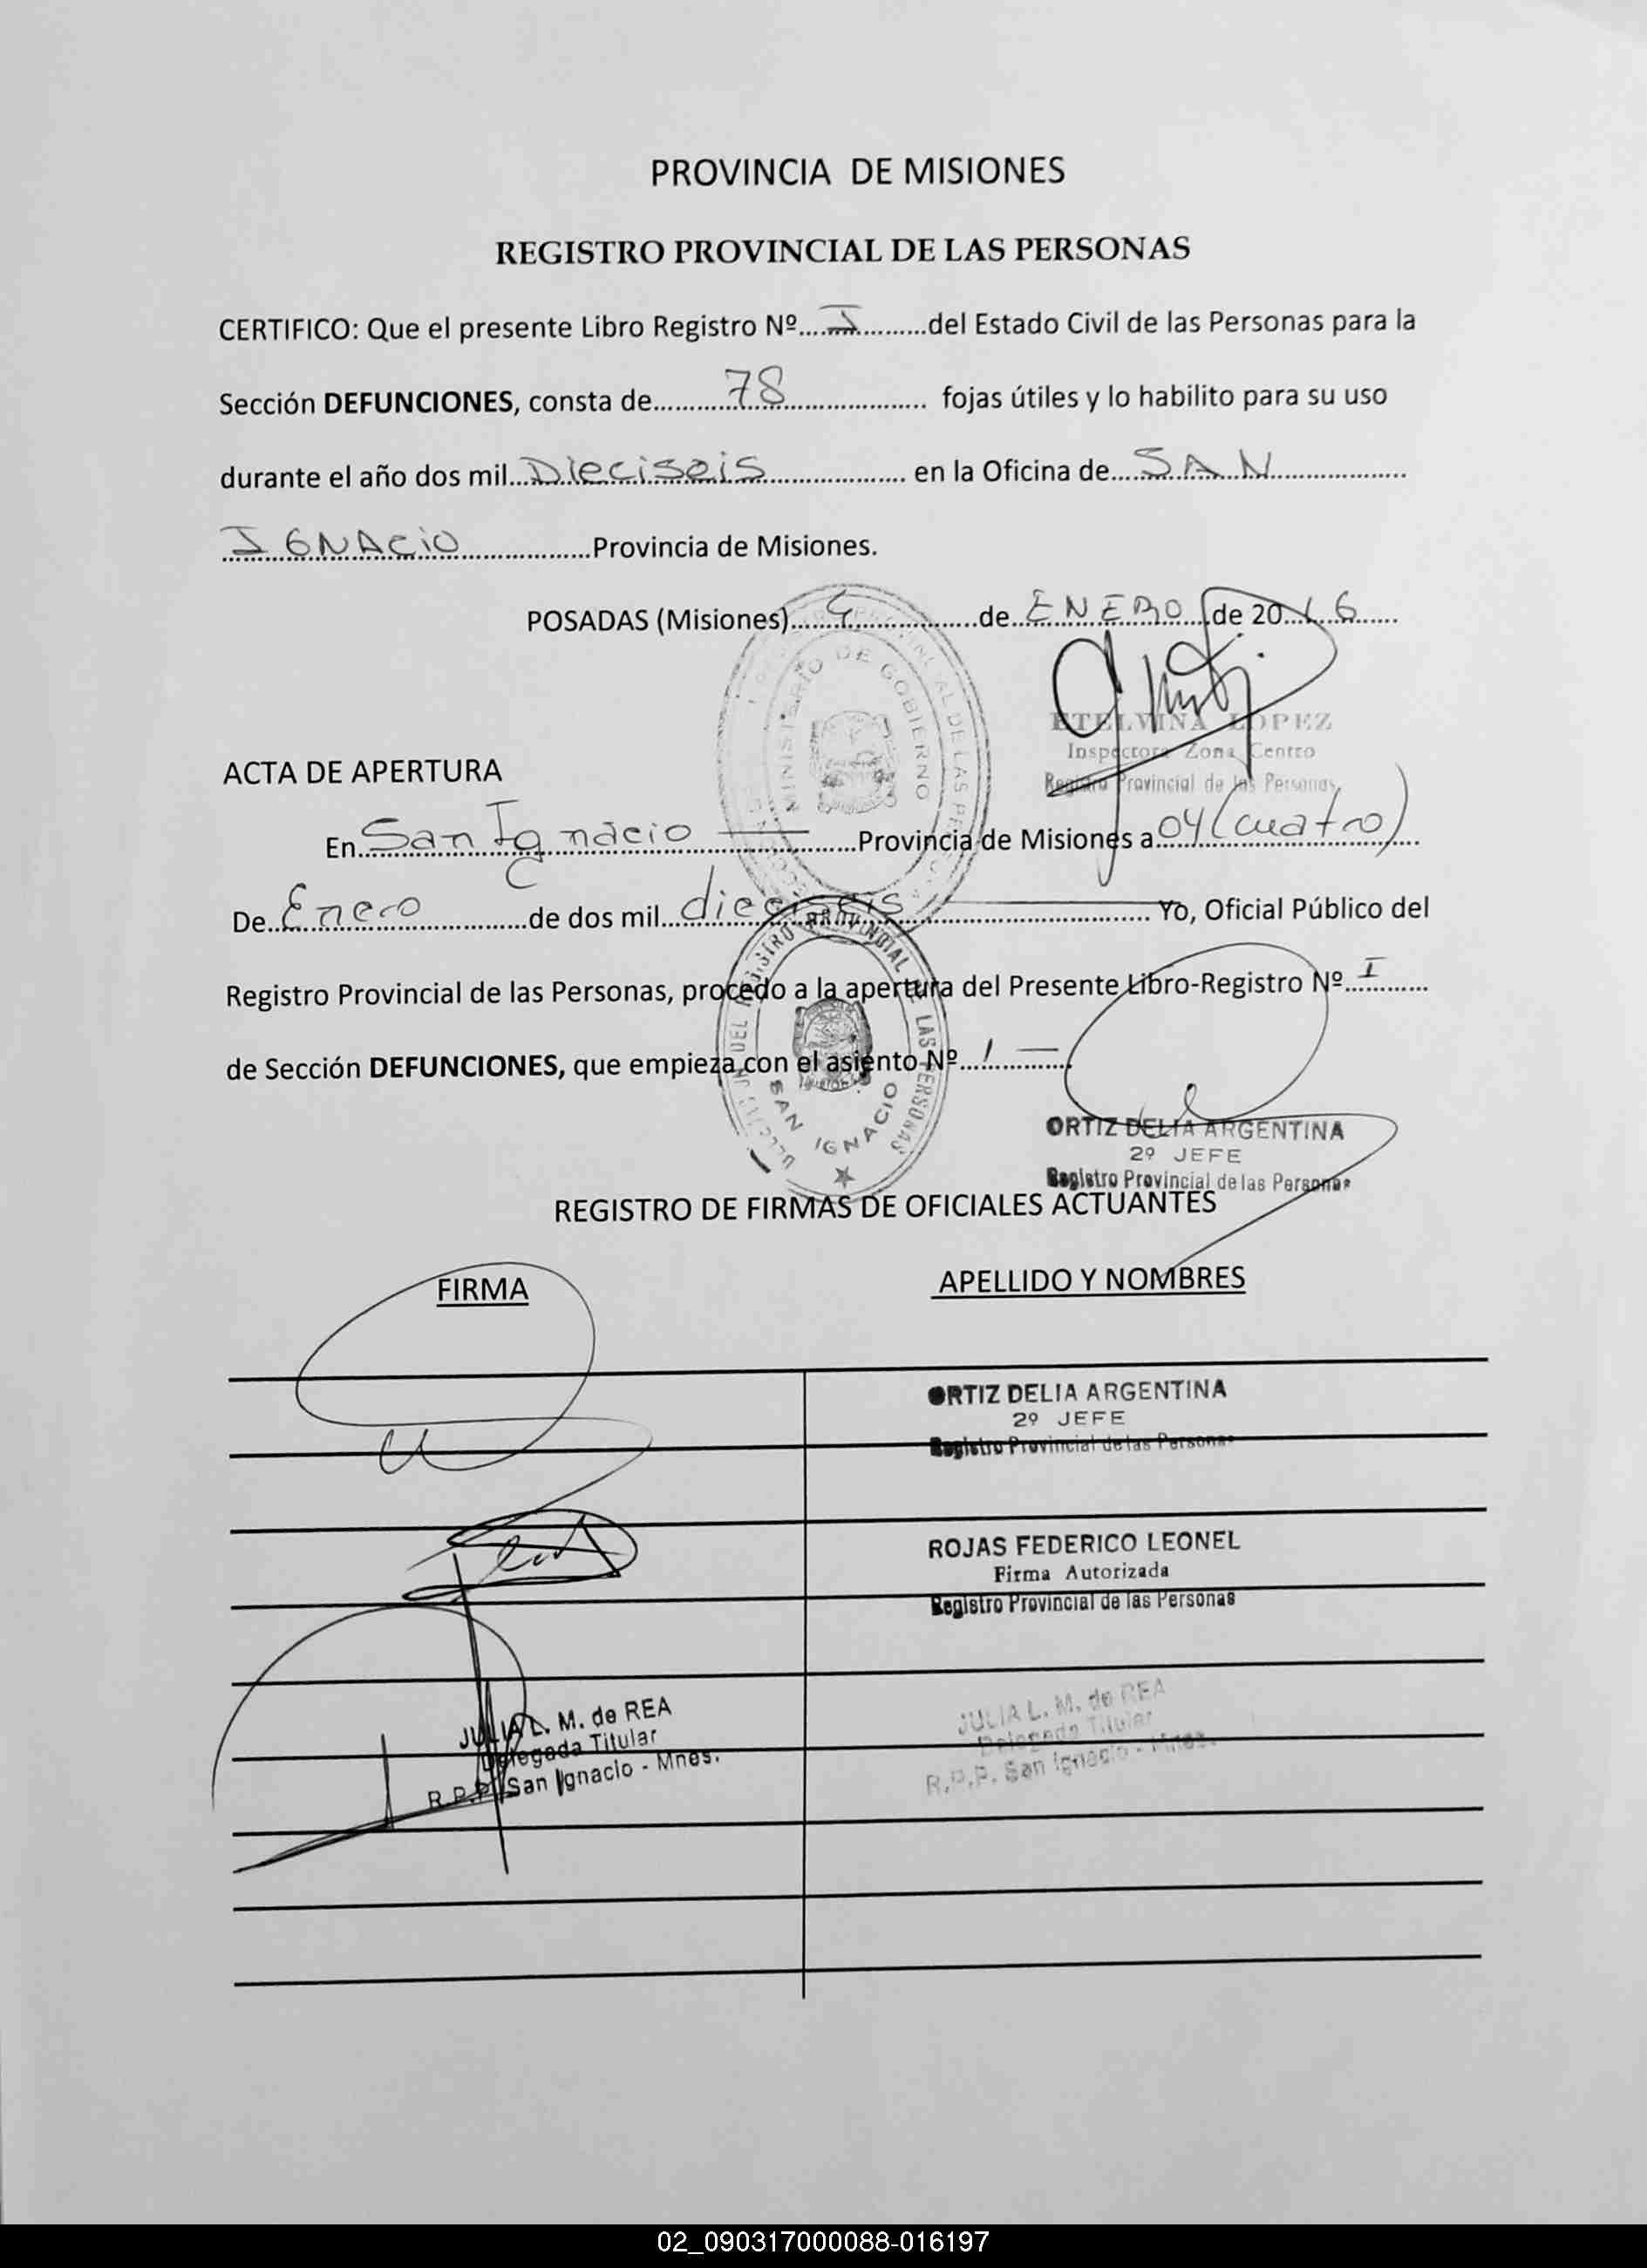 PROVINCIA DE MISIONES
REGISTRO PROVINCIAL DE LAS PERSONAS
CERTIFICO: Que el presente Libro Registro Nº....I..........del Estado Civil de las Personas para la
Sección DEFUNCIONES, consta de............78.................... fojas útiles y lo habilito para su uso
durante el año dos mil...Dieciseis.................. en la Oficina de....SAN.................
IGNACIO.................Provincia de Misiones.
POSADAS (Misiones).......4...............de..ENERO..de 20..16.....
MINISTERIO DE GOBIERNO
ETELVINA LOPEZ
Inspectora Zona Centro
Registro Provincial de las Personas
ACTA DE APERTURA
En..San Ignacio.............Provincia de Misiones a..04 (cuatro)..
De..Enero............de dos mil..dieciseis......................... Yo, Oficial Público del
Registro Provincial de las Personas, procedo a la apertura del Presente Libro-Registro Nº..I.......
de Sección DEFUNCIONES, que empieza con el asiento Nº...1...........
DEL REGISTRO PROVINCIAL DE LAS PERSONAS
SAN IGNACIO
ORTIZ DELIA ARGENTINA
2º JEFE
Registro Provincial de las Personas
REGISTRO DE FIRMAS DE OFICIALES ACTUANTES
FIRMA APELLIDO Y NOMBRES
ORTIZ DELIA ARGENTINA
2º JEFE
Registro Provincial de las Personas
ROJAS FEDERICO LEONEL
Firma Autorizada
Registro Provincial de las Personas
JULIA L. M. de REA
Delegada Titular
R.P.P. San Ignacio - Mnes.
JULIA L. M. de REA
Delegada Titular
R.P.P. San Ignacio - Mnes.
02_090317000088-016197